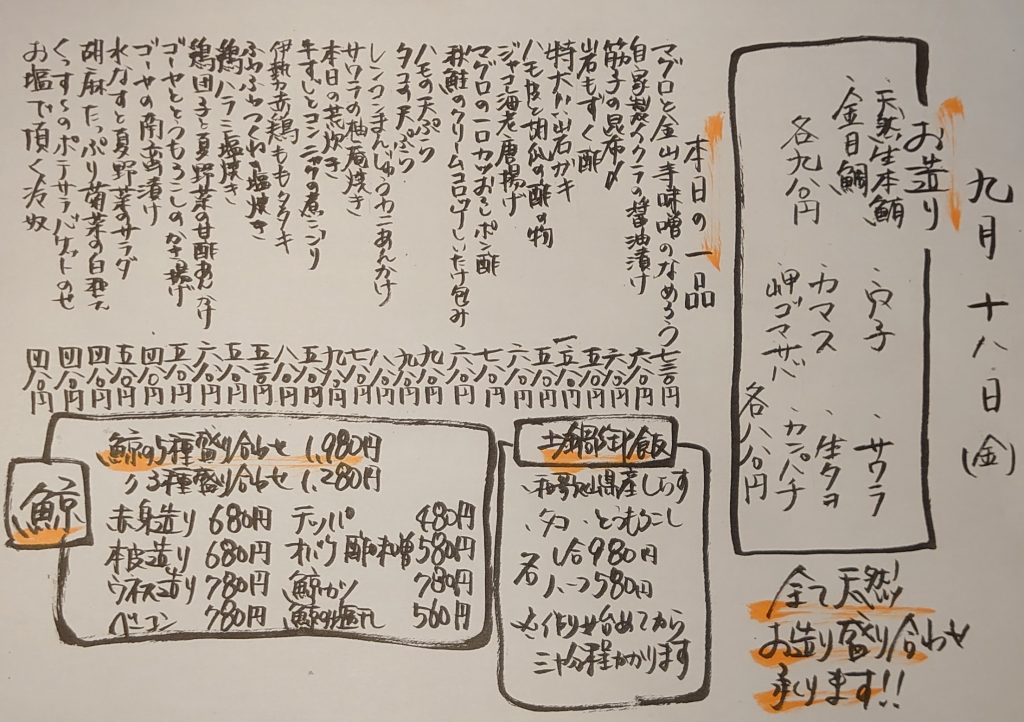 九月十八日(金)
お造り
・天然生本鮪
・金目鯛
各九八〇円
・穴子
・カマス
・岬ゴマサバ
・サワラ
・生タコ
・カンパチ
各八八〇円
全て天然!
お造り盛り合わせ
承ります!!
本日の一品
マグロと金山寺味噌のなめろう 七三〇円
自家製イクラの醤油漬け 六八〇円
筋子の昆布〆 六八〇円
岩もずく酢 五八〇円
特大岩ガキ
ハモ皮と胡瓜の酢の物 五八〇円
ジャコ海老唐揚げ 六八〇円
マグロの一口カツおろしポン酢 七八〇円
秋鮭のクリームコロッケしいたけ包み 六八〇円
ハモの天ぷら 九八〇円
タコの天ぷら 九八〇円
レンコンまんじゅうカニあんかけ 八八〇円
サワラの柚庵焼き
本日の荒炊き
牛すじとコンニャクの煮こごり 五八〇円
伊勢赤鶏もものタタキ 八八〇円
ふわふわつくね塩焼き 五三〇円
鶏ハラミ塩焼き 五八〇円
鶏団子と夏野菜の甘酢あんかけ 六八〇円
ゴーヤととうもろこしのかき揚げ 五八〇円
ゴーヤの南蛮漬け 四八〇円
水なすと夏野菜のサラダ 五八〇円
胡麻たっぷり菊菜の白和え 四八〇円
くっすぅのポテサラバケットのせ 四八〇円
お塩で頂く冷奴 四八〇円
土鍋御飯
・和歌山県産しらす
・タコ・とうもろこし
各
一合980円
ハーフ580円
※作り始めてから
三十分程かかります
鯨
鯨の5種盛り合わせ 1,980円
〃3種盛り合わせ 1,280円
赤身造り 680円
本皮造り 680円
ウネス造り 780円
ベーコン 780円
テッパ 480円
オバケ酢味噌 580円
鯨カツ 780円
鯨塩干し 560円